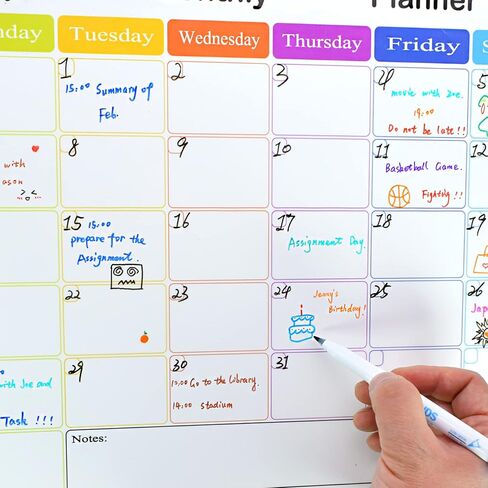 Planner
Tuesday
Wednesday
Thursday
Friday
1
15:00 Summary of
Feb.
2
3
4
movie with Zoe.
19:00
Do not be late!!
5
with
ason
8
9
10
11
Basketball Game.
Fighting!!
12
15 15:00
prepare for the
Assignment.
16
17
Assignment Day.
18
19
22
23
24
Jenny's
Birthday!
25
26
Jap
with Joe and
Task !!!
29
30
10:00 Go to the Library.
14:00 stadium
31
Notes: